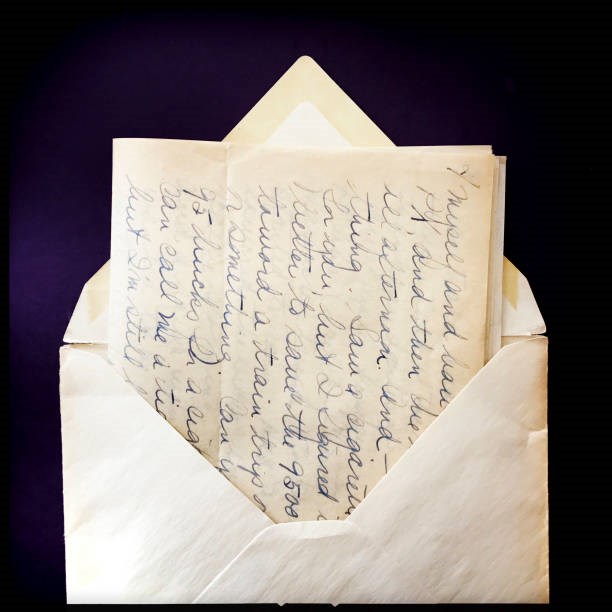 myself and hav
and then the
all afternoon. And —
thing. Saw a cigarett
for you, but I figured i
better to save the 9500
toward a train trip o
or something. Can y
95 bucks for a cig
can call me a ti
but I'm still